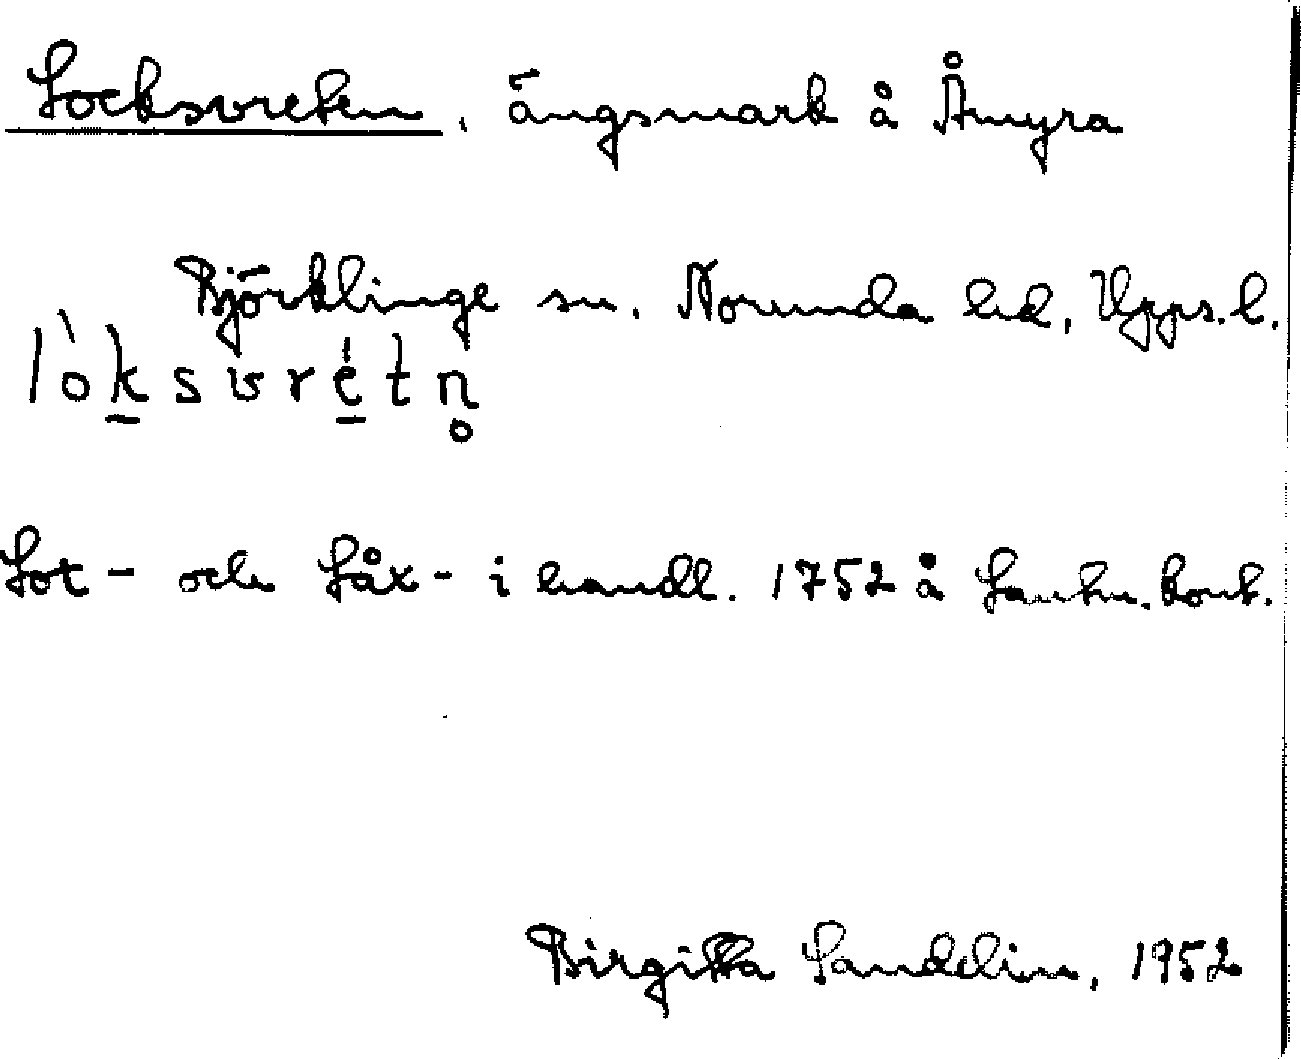 Locksvreten, ängsmark å Åmyra
Björklinge sn, Norunda hd, Upps. l.
lòk̠svrét̠n̥
Lot- och Låx- i handl. 1752 å Lantm. kont.
Birgitta Landelin, 1952